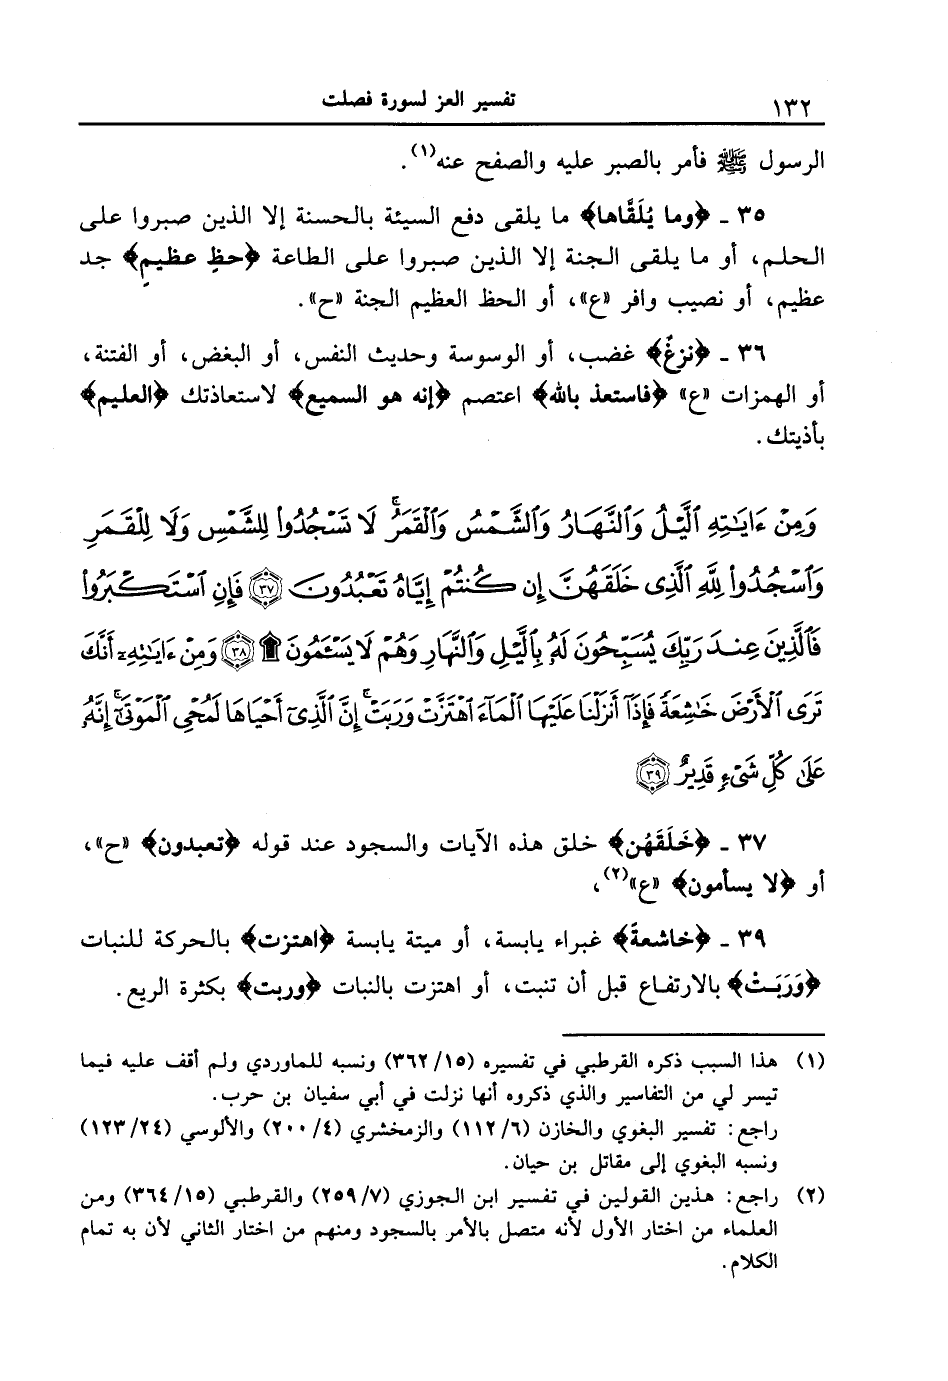 ١٣٢
تفسير العز لسورة فصلت
الرسول ﷺ فأمر بالصبر عليه والصفح عنه(١).
٣٥ ـ ﴿وما يُلَقَّاها﴾ ما يلقى دفع السيئة بالحسنة إلا الذين صبروا على
الحلم، أو ما يلقى الجنة إلا الذين صبروا على الطاعة ﴿حظٍ عظيمٍ﴾ جد
عظيم، أو نصيب وافر «ع»، أو الحظ العظيم الجنة «ح».
٣٦ ـ ﴿نزغٌ﴾ غضب، أو الوسوسة وحديث النفس، أو البغض، أو الفتنة،
أو الهمزات «ع» ﴿فاستعذ بالله﴾ اعتصم ﴿إنه هو السميع﴾ لاستعاذتك ﴿العليم﴾
بأذيتك.
وَمِنْ ءَايَٰتِهِ ٱلَّيْلُ وَٱلنَّهَارُ وَٱلشَّمْسُ وَٱلْقَمَرُ ۚ لَا تَسْجُدُوا۟ لِلشَّمْسِ وَلَا لِلْقَمَرِ
وَٱسْجُدُوا۟ لِلَّهِ ٱلَّذِى خَلَقَهُنَّ إِن كُنتُمْ إِيَّاهُ تَعْبُدُونَ ﴿٣٧﴾ فَإِنِ ٱسْتَكْبَرُوا۟
فَٱلَّذِينَ عِندَ رَبِّكَ يُسَبِّحُونَ لَهُۥ بِٱلَّيْلِ وَٱلنَّهَارِ وَهُمْ لَا يَسْـَٔمُونَ ۩ ﴿٣٨﴾ وَمِنْ ءَايَٰتِهِۦٓ أَنَّكَ
تَرَى ٱلْأَرْضَ خَٰشِعَةً فَإِذَآ أَنزَلْنَا عَلَيْهَا ٱلْمَآءَ ٱهْتَزَّتْ وَرَبَتْ ۚ إِنَّ ٱلَّذِىٓ أَحْيَاهَا لَمُحْىِ ٱلْمَوْتَىٰٓ ۚ إِنَّهُۥ
عَلَىٰ كُلِّ شَىْءٍ قَدِيرٌ ﴿٣٩﴾
٣٧ ـ ﴿خَلَقَهُن﴾ خلق هذه الآيات والسجود عند قوله ﴿تعبدون﴾ «ح»،
أو ﴿لا يسأمون﴾ «ع»(٢)،
٣٩ ـ ﴿خاشعةً﴾ غبراء يابسة، أو ميتة يابسة ﴿اهتزت﴾ بالحركة للنبات
﴿وَرَبَتْ﴾ بالارتفاع قبل أن تنبت، أو اهتزت بالنبات ﴿وربت﴾ بكثرة الريع.
(١) هذا السبب ذكره القرطبي في تفسيره (٣٦٢/١٥) ونسبه للماوردي ولم أقف عليه فيما
تيسر لي من التفاسير والذي ذكروه أنها نزلت في أبي سفيان بن حرب.
راجع: تفسير البغوي والخازن (١١٢/٦) والزمخشري (٢٠٠/٤) والألوسي (١٢٣/٢٤)
ونسبه البغوي إلى مقاتل بن حيان.
(٢) راجع: هذين القولين في تفسير ابن الجوزي (٢٥٩/٧) والقرطبي (٣٦٤/١٥) ومن
العلماء من اختار الأول لأنه متصل بالأمر بالسجود ومنهم من اختار الثاني لأن به تمام
الكلام.